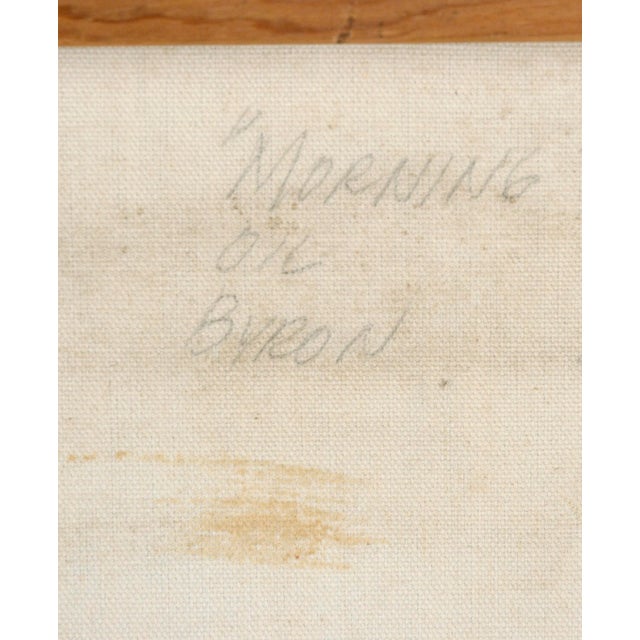 "MORNING"
OIL
BYRON